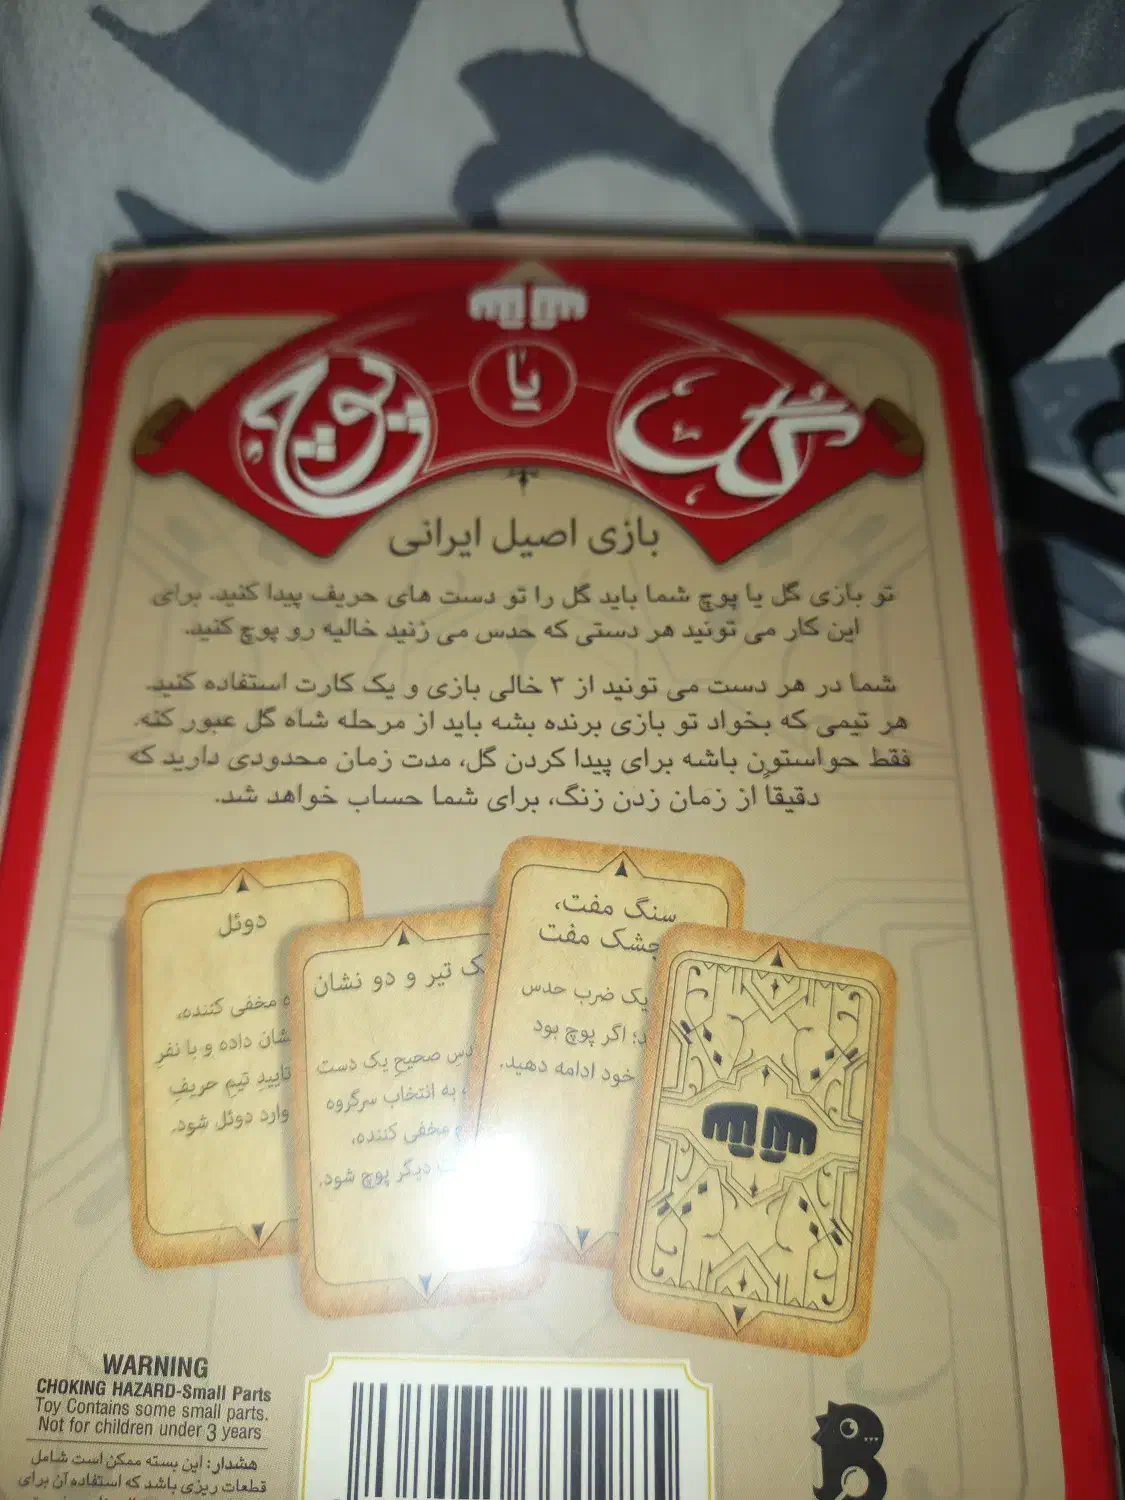 گل
یا
پوچ
بازی اصیل ایرانی
تو بازی گل یا پوچ شما باید گل را تو دست های حریف پیدا کنید. برای
این کار می تونید هر دستی که حدس می زنید خالیه رو پوچ کنید.
شما در هر دست می تونید از ۳ خالی بازی و یک کارت استفاده کنید.
هر تیمی که بخواد تو بازی برنده بشه باید از مرحله شاه گل عبور کنه.
فقط حواستون باشه برای پیدا کردن گل، مدت زمان محدودی دارید که
دقیقاً از زمان زدن زنگ، برای شما حساب خواهد شد.
سنگ مفت،
جشک مفت
یک ضرب حدس
د؛ اگر پوچ بود
خود ادامه دهید.
ک تیر و دو نشان
دس صحیح یک دست
به انتخاب سرگروه
مخفی کننده،
دیگر پوچ شود.
دوئل
ه مخفی کننده،
شان داده و با نفر
تایید تیم حریف
وارد دوئل شود.
WARNING
CHOKING HAZARD-Small Parts
Toy Contains some small parts.
Not for children under 3 years
هشدار: این بسته ممکن است شامل
قطعات ریزی باشد که استفاده آن برای